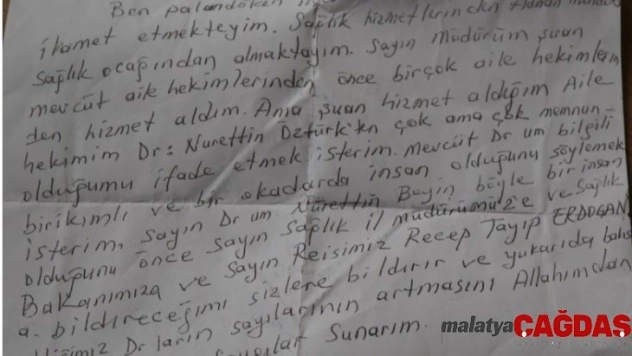 Ben palandöken
ikamet etmekteyim. Sağlık hizmetlerinden
sağlık ocağından almaktayım. Sayın Müdürüm şuan
mevcüt aile hekimlerinden önce birçok aile hekimlerin
den hizmet aldım. Ama şuan hizmet aldığım Aile
hekimim Dr: Nurettin Öztürk'ten çok ama çok memnun
olduğumu ifade etmek isterim. Mevcüt Dr um bilgili
birikimli ve bir o kadarda insan olduğunu söylemek
isterim. Sayın Dr um Nurettin Beyin böyle bir insan
olduğunu önce sayın sağlık il müdürümüze ve Sağlık
Bakanımıza ve Sayın Reisimiz Recep Tayip ERDOĞAN
a. bildireceğimi sizlere bildirir ve yukarıda bahs
Dr ların sayılarının artmasını Allahımdan
Sunarım.
malatya ÇAĞDAŞ